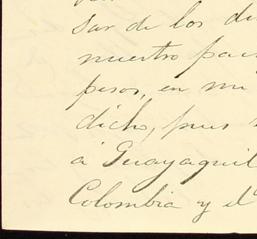 sar de los di
nuestro pais
pesos, en mi
dicho, pues
á Guayaquil
Colombia y el